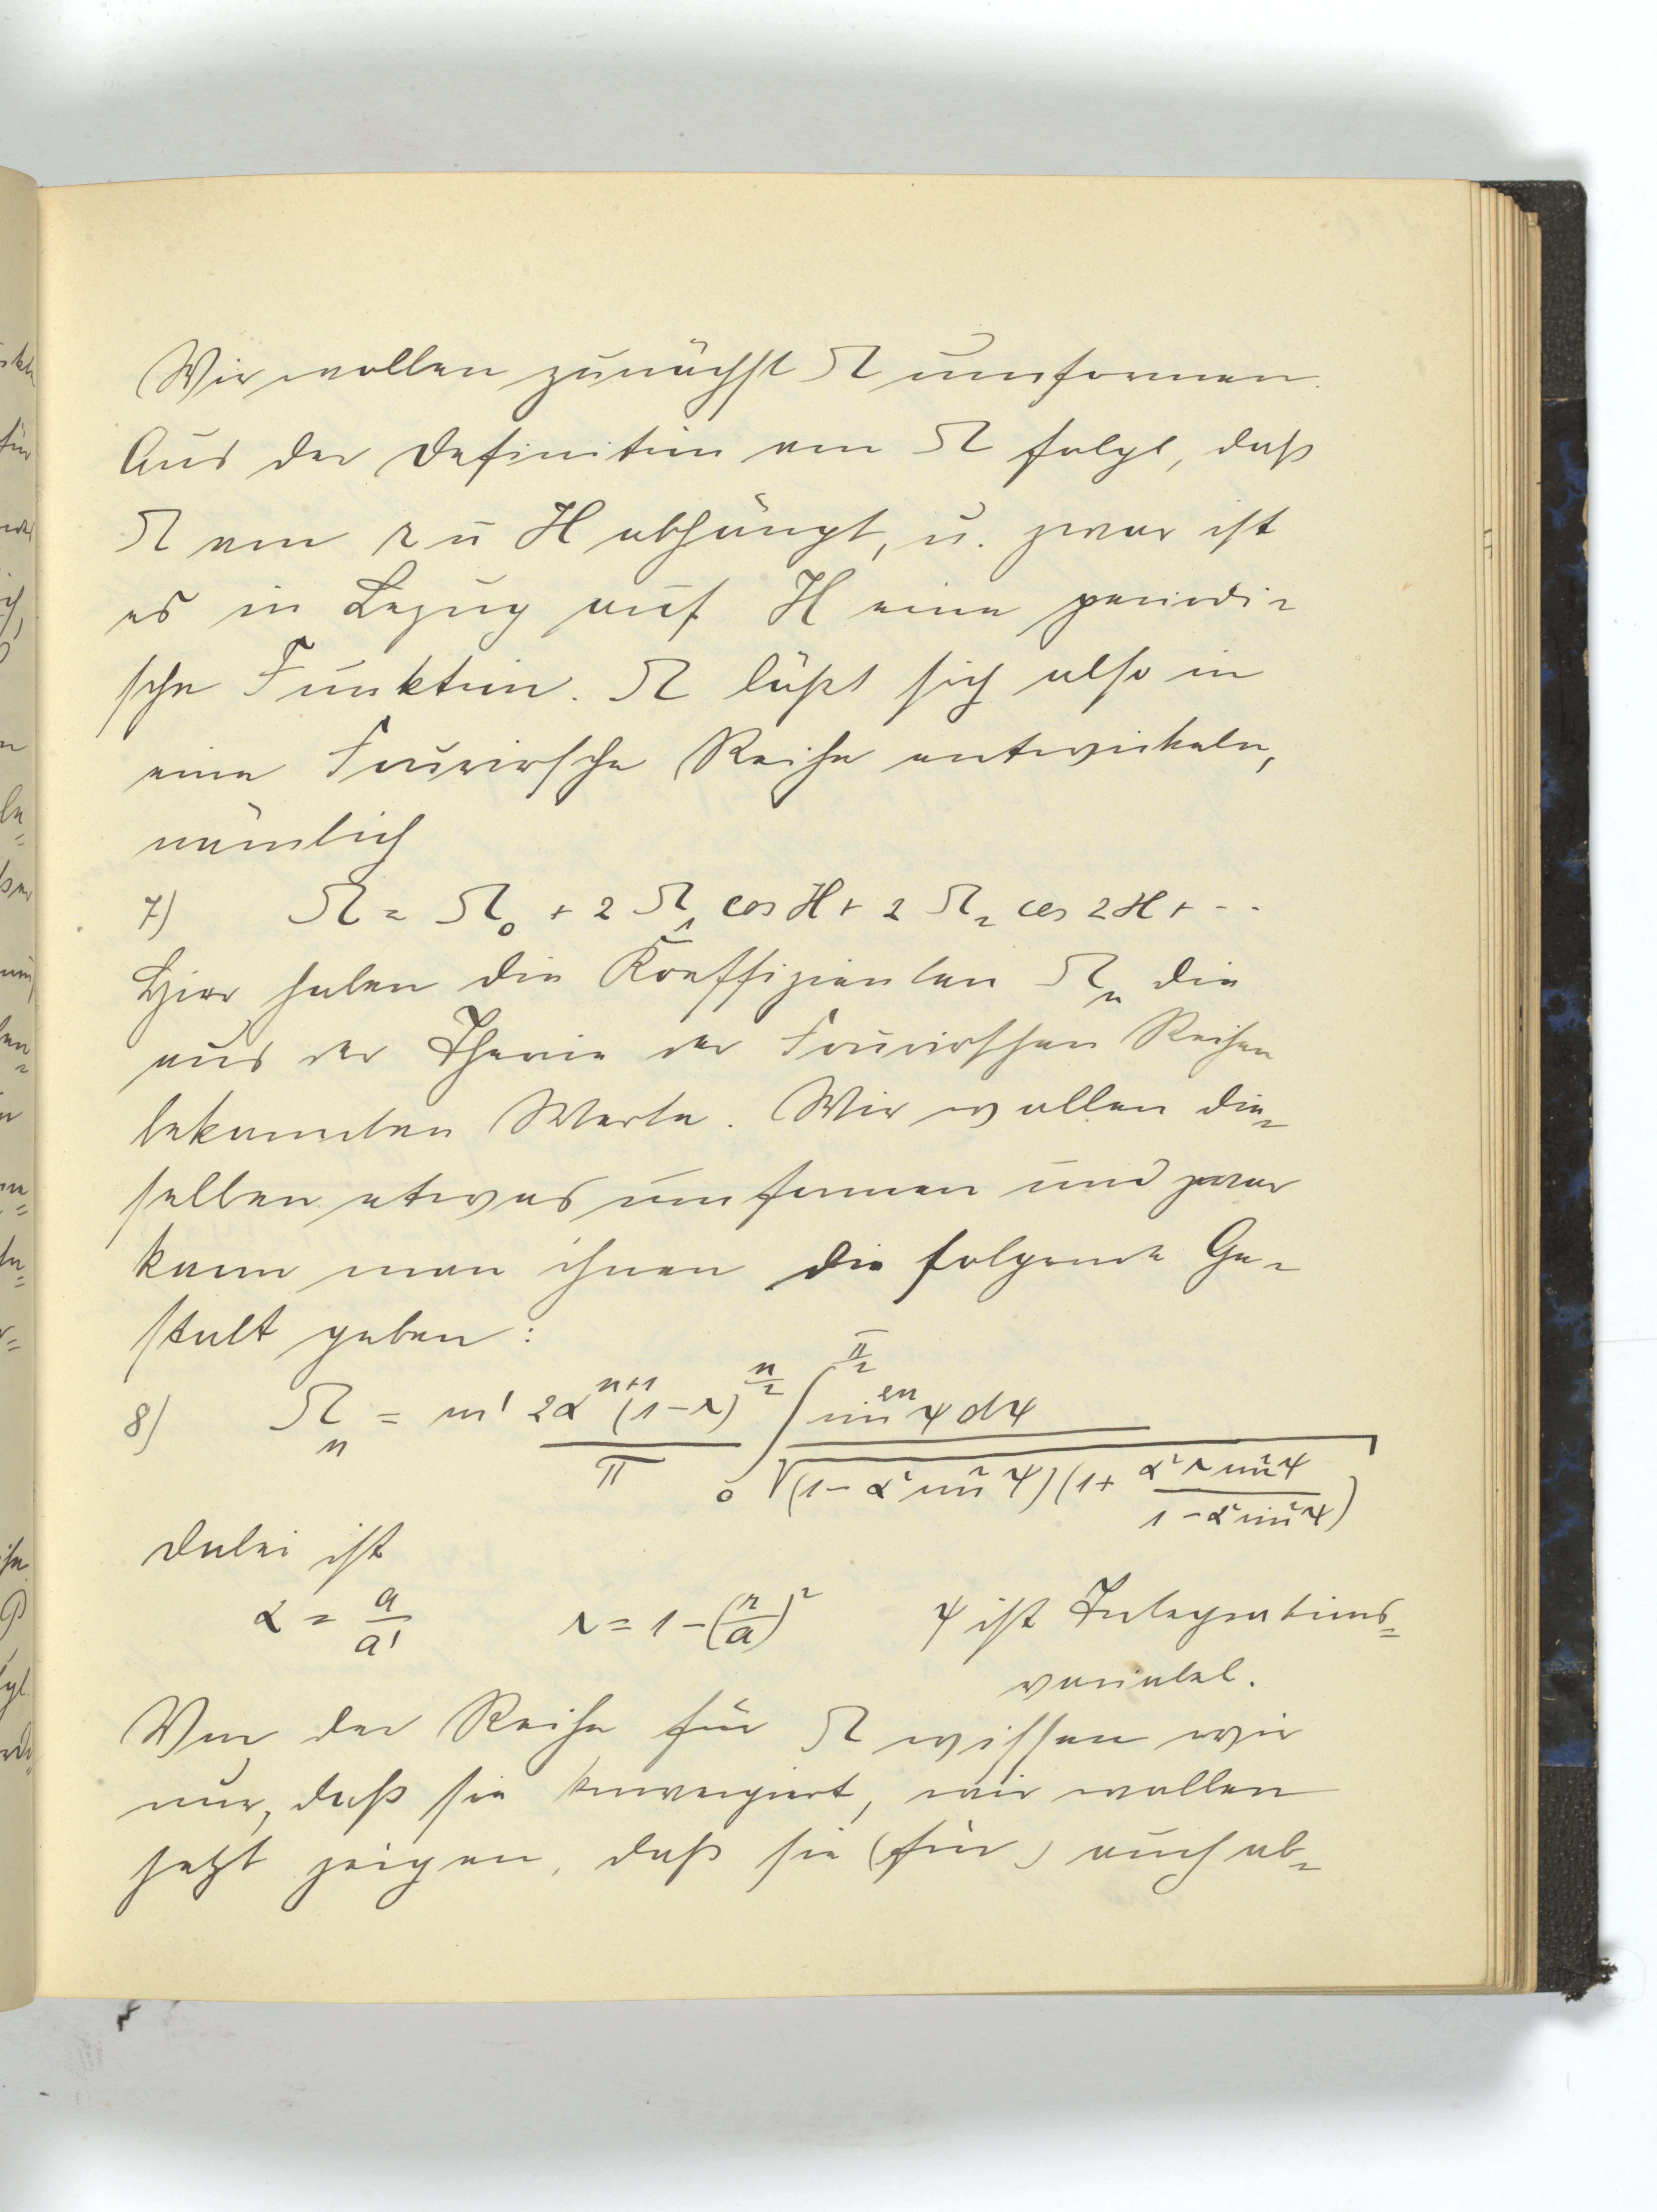 Wir wollen zunächst Ω umformen.
Aus der Definition von Ω folgt, daß
Ω von r u H abhängt, u. zwar ist
es in Bezug auf H eine periodi=
sche Funktion. Ω läßt sich also in
eine Fouriersche Reihe entwickeln,
nämlich
7) Ω = Ω₀ + 2 Ω₁ cos H + 2 Ω₂ cos 2H + ...
Hier haben die Koeffizienten Ωₙ die
aus der Theorie der Fourierschen Reihen
bekannten Werte. Wir wollen die=
selben etwas umformen und zwar
kann man ihnen die folgende Ge=
stalt geben:
8) Ωₙ = m' 2αⁿ⁺¹(1-r)^(n/2) / π ∫₀^(π/2) sin²ⁿ ψ dψ / √((1-α² sin² ψ)(1+ α² r sin² ψ / (1-α² sin² ψ)))
Dabei ist
α = a/a' r = 1-(r/a)² ψ ist Integrations=
variabel.
Von der Reihe für Ω wissen wir
nur, daß sie konvergiert, wir wollen
jetzt zeigen, daß sie (für) auch ab=